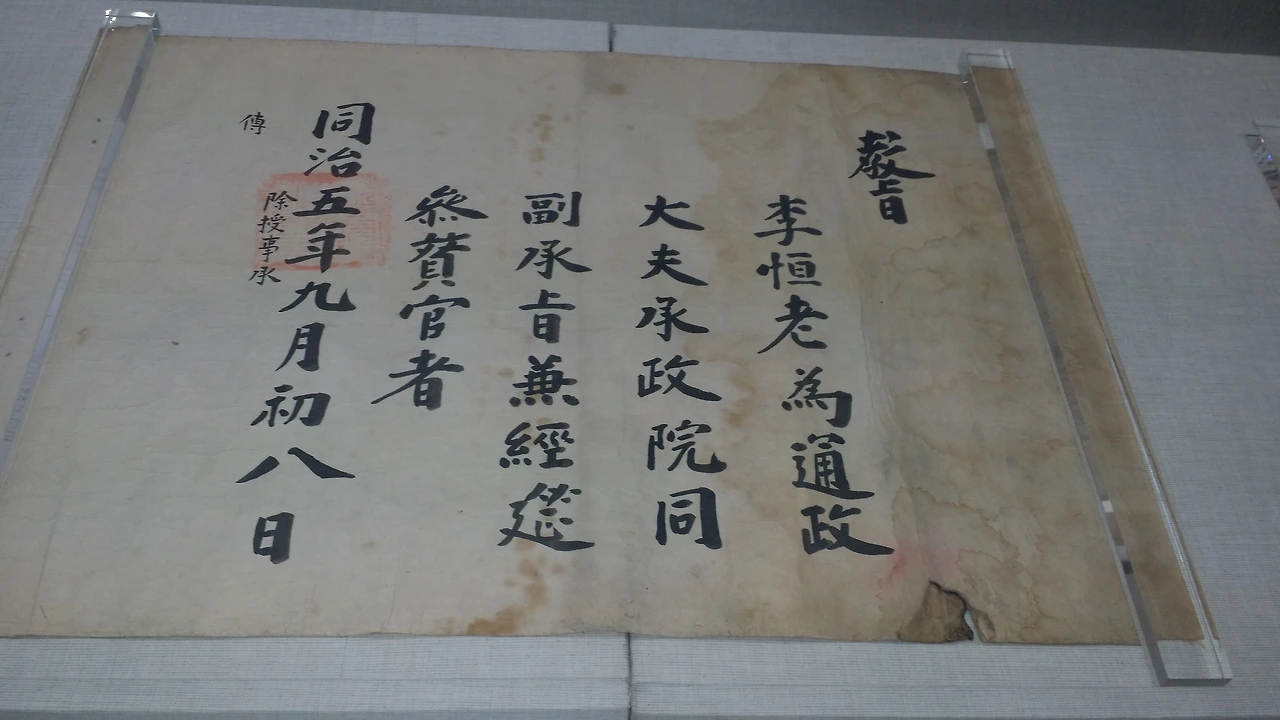 教旨
李恒老為通政
大夫承政院同
副承旨兼經筵
叅贊官者
同治五年九月初八日
除授事承
傳